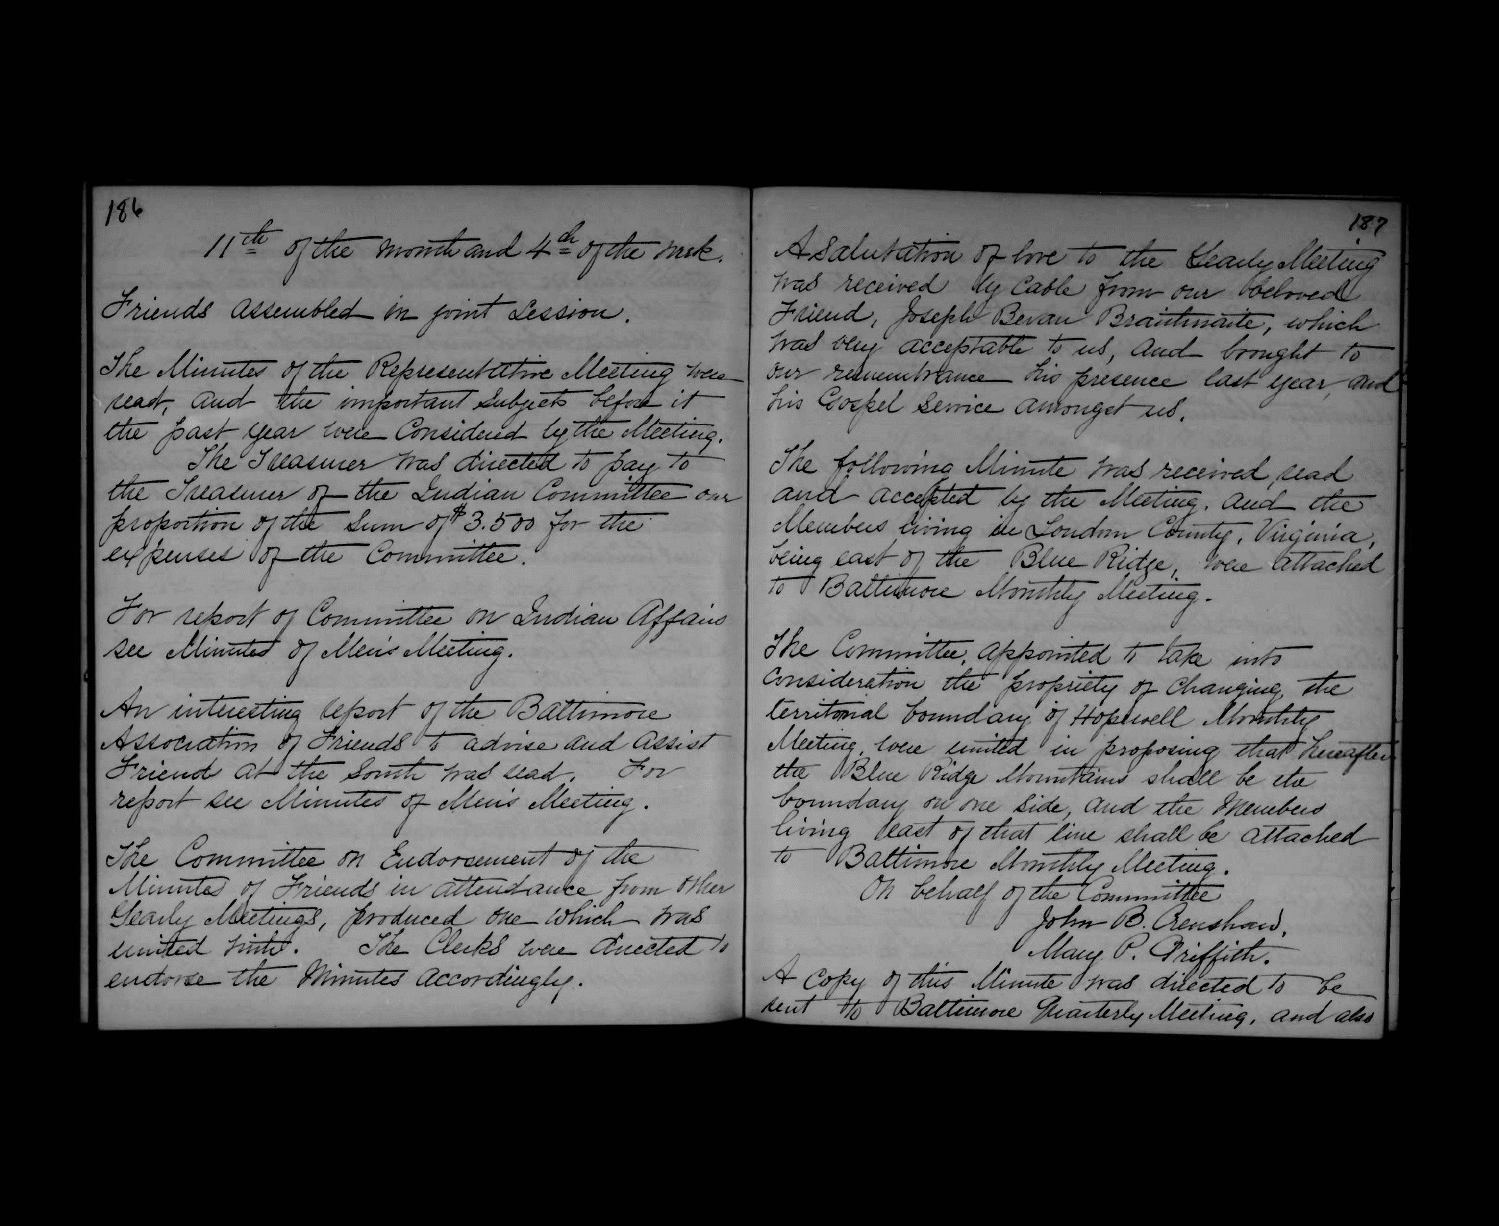 186
11th of the month and 4th of the week.
Friends assembled in joint Session.
The Minutes of the Representative Meeting were
read, and the important subjects before it
the past year were Considered by the Meeting.
The Treasurer was directed to pay to
the Treasurer of the Indian Committee our
proportion of the Sum of $3.500 for the
expenses of the Committee.
For report of Committee on Indian Affairs
see Minutes of Men's Meeting.
An interesting report of the Baltimore
Association of Friends to advise and assist
Friend at the South was read. For
report see Minutes of Men's Meeting.
The Committee on Endorsement of the
Minutes of Friends in attendance from other
Yearly Meetings, produced one which was
united with. The Clerks were directed to
endorse the Minutes accordingly.
187
A Salutation of love to the Yearly Meeting
was received by Cable from our beloved
Friend, Joseph Bevan Braithwaite, which
was very acceptable to us, and brought to
our remembrance his presence last year, and
his Gospel Service amongst us.
The following Minute was received, read
and accepted by the Meeting, and the
Members living in Loudoun County, Virginia,
being east of the Blue Ridge, were attached
to Baltimore Monthly Meeting.
The Committee, appointed to take into
Consideration the propriety of Changing the
territorial boundary of Hopewell Monthly
Meeting, were united in proposing that hereafter
the Blue Ridge Mountains shall be the
boundary on one side, and the Members
living east of that line shall be attached
to Baltimore Monthly Meeting.
On behalf of the Committee
John B. Crenshaw,
Mary P. Griffith.
A copy of this Minute was directed to be
sent to Baltimore Quarterly Meeting, and also